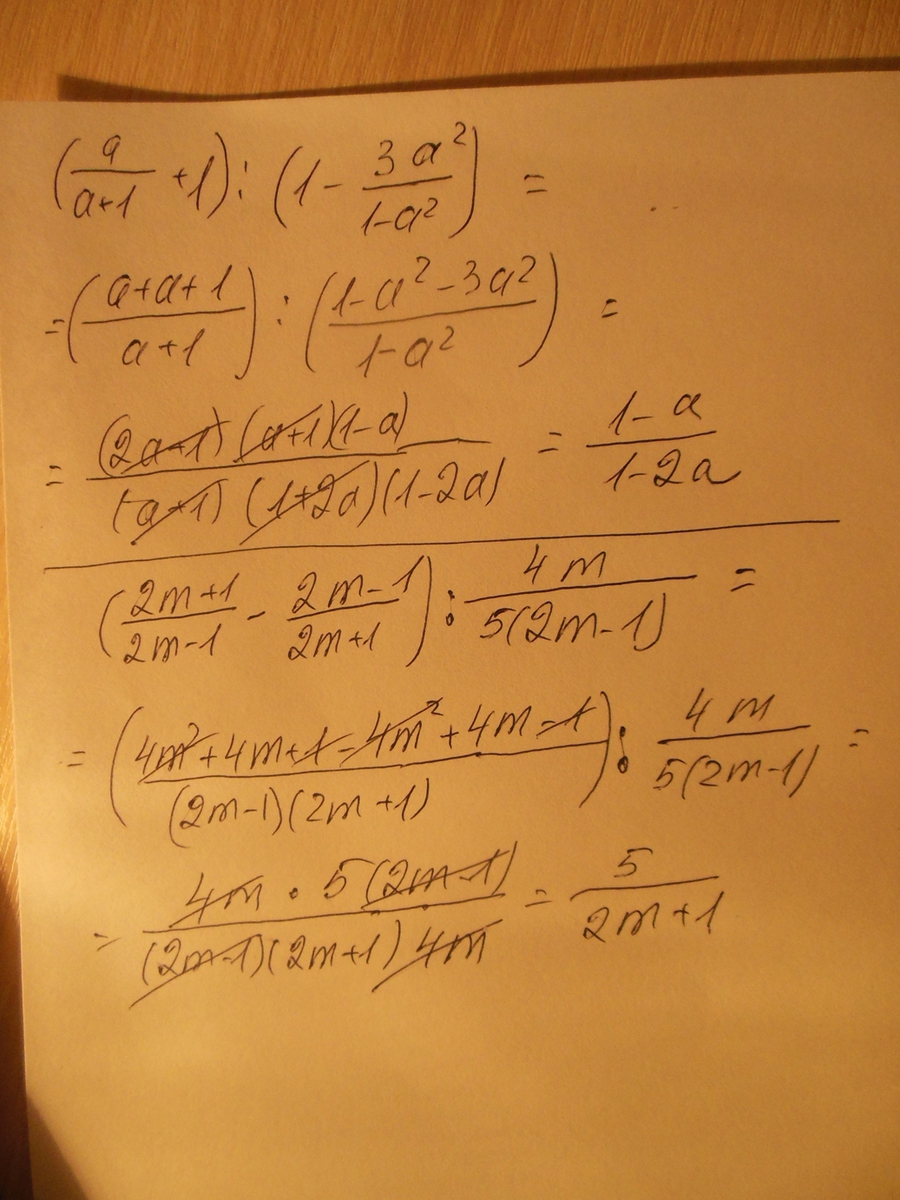 (a/(a+1) + 1) : (1 - 3a²/(1-a²)) =
= ((a+a+1)/(a+1)) : ((1-a²-3a²)/(1-a²)) =
= ((2a+1)(a+1)(1-a))/((a+1)(1+2a)(1-2a)) = (1-a)/(1-2a)
((2m+1)/(2m-1) - (2m-1)/(2m+1)) : 4m/(5(2m-1)) =
= ((4m²+4m+1-4m²+4m-1)/((2m-1)(2m+1))) : 4m/(5(2m-1)) =
= (4m · 5(2m-1))/((2m-1)(2m+1)4m) = 5/(2m+1)